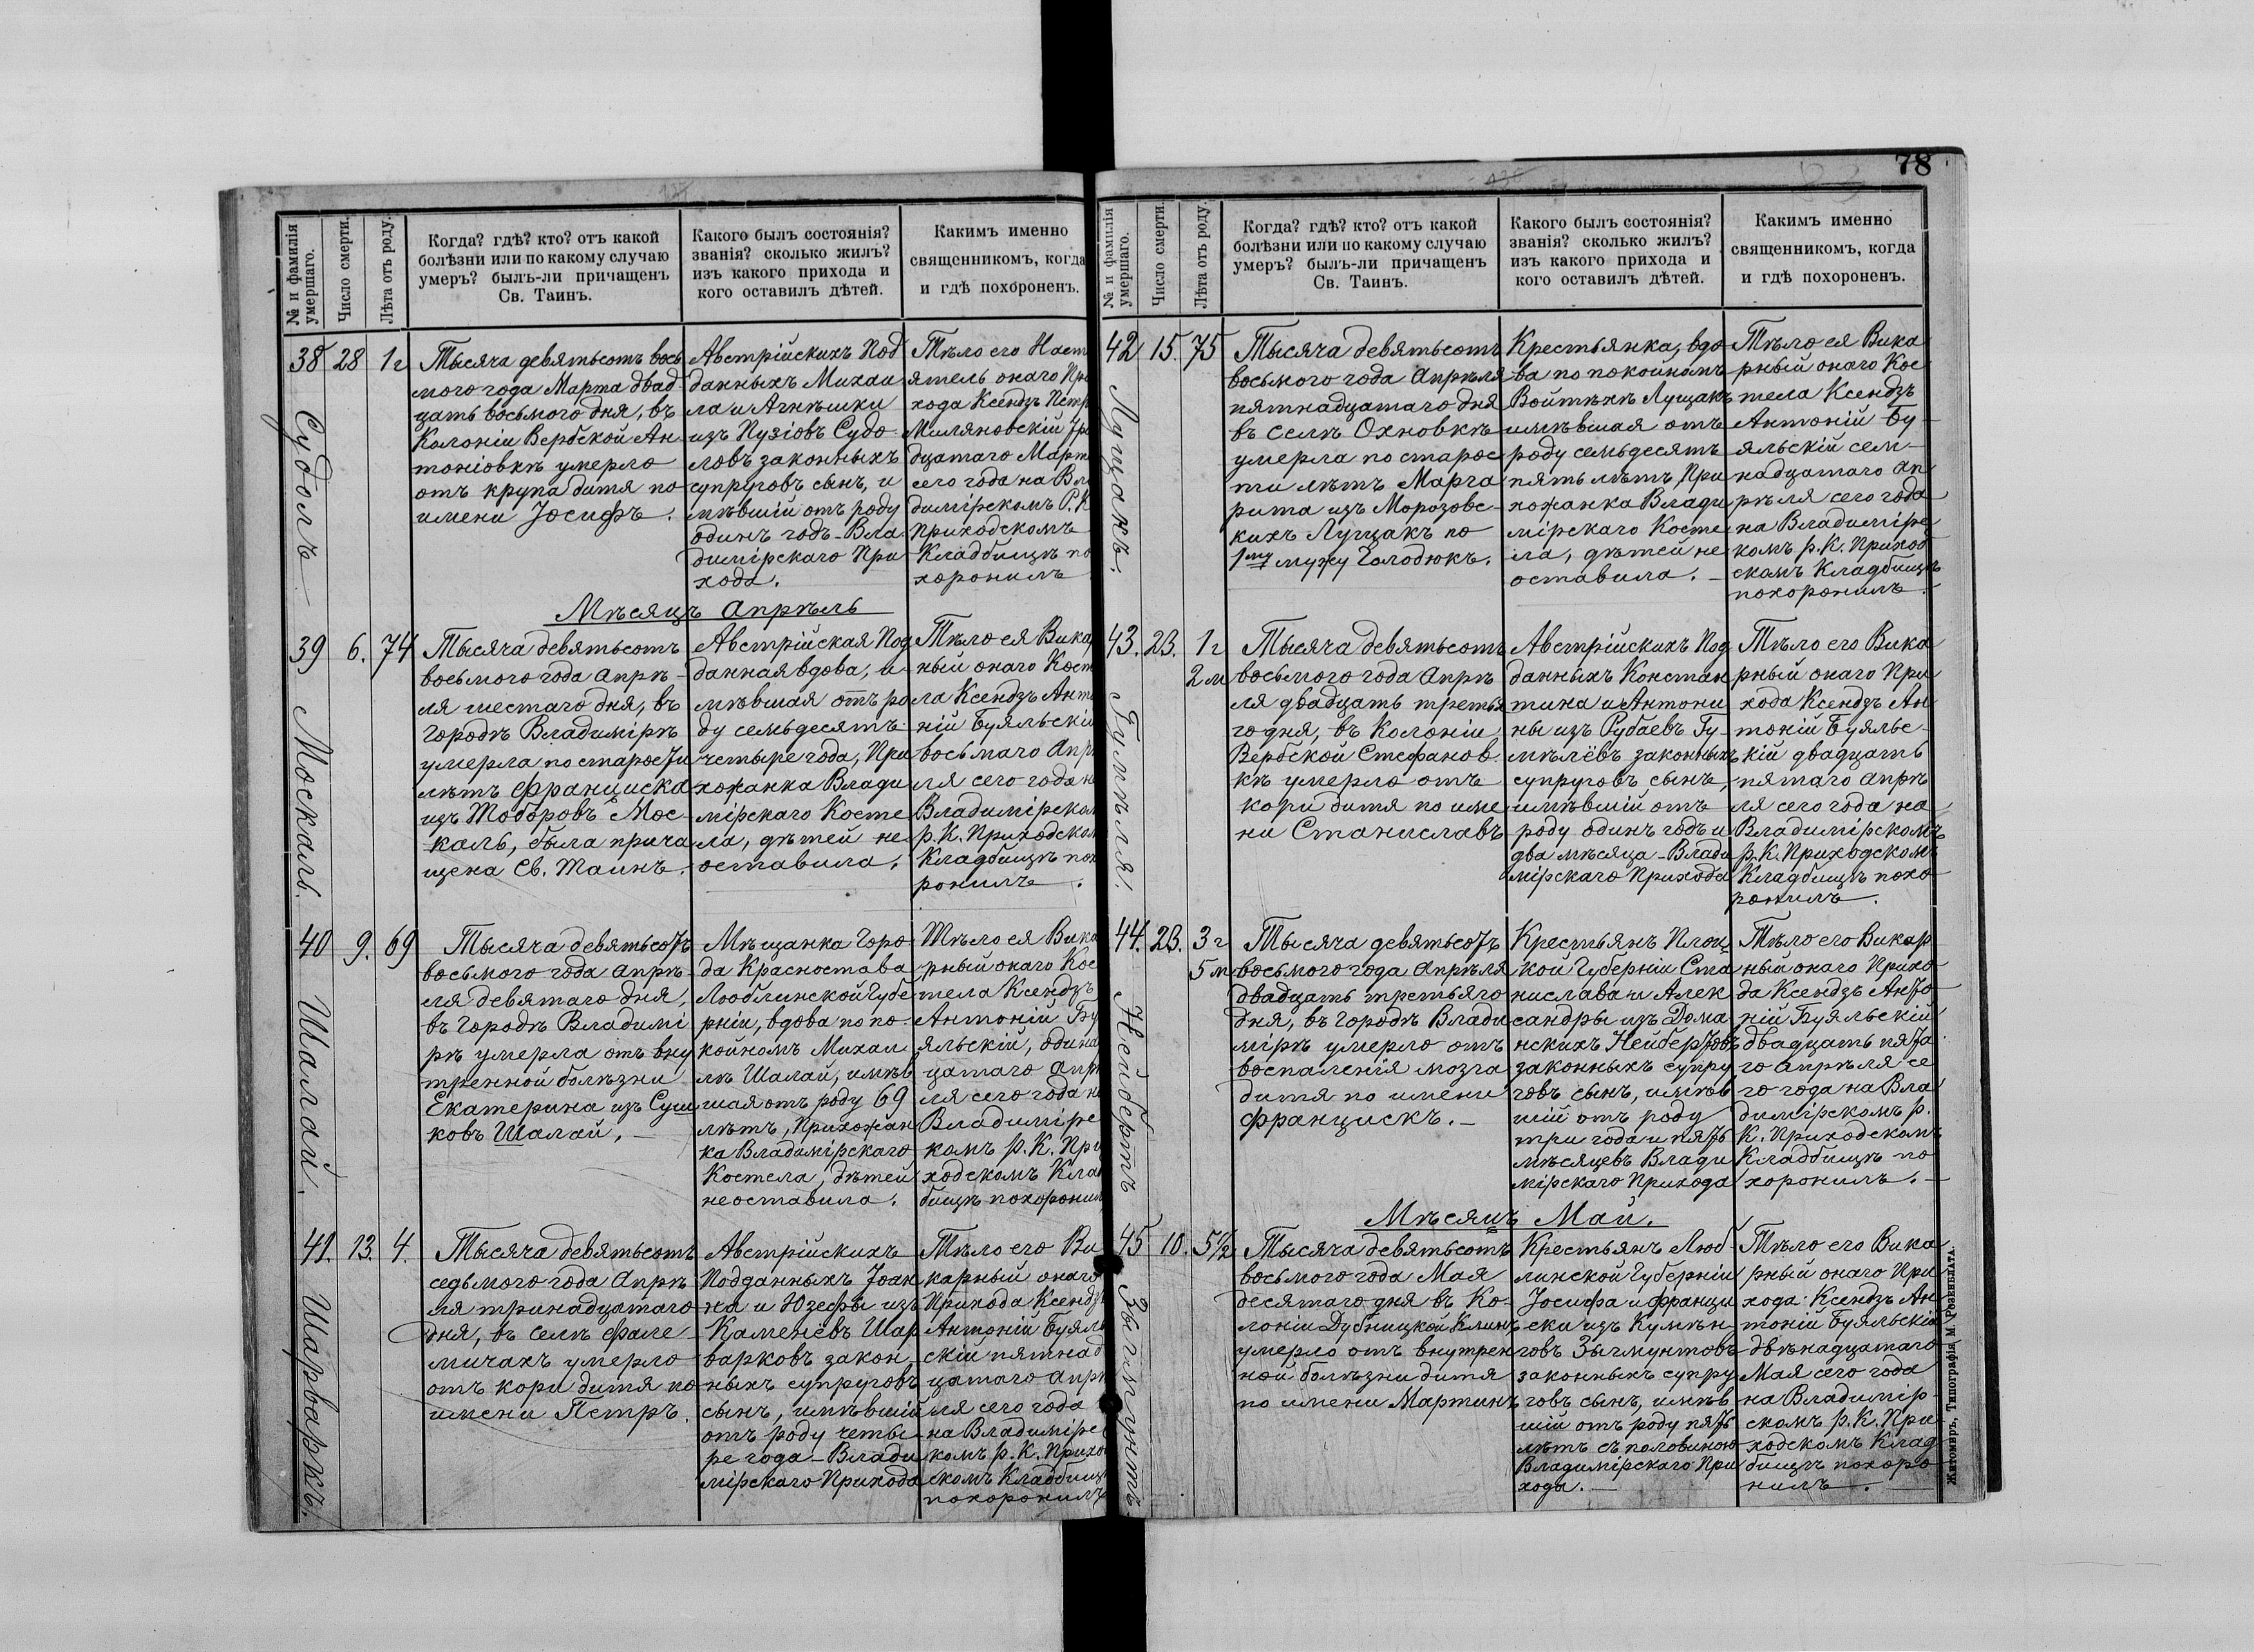 78
№ и фамилія
умершаго.
Число смерти.
Лѣта отъ роду.
Когда? гдѣ? кто? отъ какой
болѣзни или по какому случаю
умеръ? былъ-ли причащенъ
Св. Таинъ.
Какого былъ состоянія?
званія? сколько жилъ?
изъ какого прихода и
кого оставилъ дѣтей.
Какимъ именно
священникомъ, когда
и гдѣ похороненъ.
38
Судолъ
28
1 г
Тысяча девятьсотъ вось
мого года Марта двад
цать восьмого дня, въ
Колоніи Вербской Ан
тоніовкѣ умерло
отъ крупа дитя по
имени Іосифъ.
Австрійскихъ Под
данныхъ Михаи
ла и Агнѣшки
изъ Пузіовъ Судо
ловъ законныхъ
супруговъ сынъ, и
мѣвшій отъ роду
одинъ годъ - Вла
димірскаго При
хода.
Тѣло его Наст
ятель онаго При
хода Ксендзъ Петр
Миляновскій Три
дцатаго Март
сего года на Вла
димірскомъ Р. К
Приходскомъ
Кладбищѣ по
хоронилъ
Мѣсяцъ Апрѣль
39
Москаль.
6.
74
Тысяча девятьсотъ
восьмого года Апрѣ-
ля шестаго дня, въ
городѣ Владимірѣ
умерла по старости
лѣтъ Франциска
изъ Тоборовъ Мос-
каль, была прича
щена Св. Таинъ.
Австрійская Под
данная вдова, и
мѣвшая отъ ро
ду семьдесятъ
четыре года, При
хожанка Влади
мірскаго Косте
ла, дѣтей не
оставила.
Тѣло ея Викар
ный онаго Кост
ла Ксендзъ Анто
ній Буяльскій
восьмаго Апрѣ
ля сего года на
Владимірском
р. К. Приходском
Кладбищѣ пох
ронилъ.
40
Шалай.
9.
69
Тысяча девятьсотъ
восьмого года Апрѣ-
ля девятаго дня,
въ городѣ Владимі
рѣ умерла отъ вну
тренной болѣзни
Екатерина изъ Суш
ковъ Шалай. —
Мѣщанка Горо
да Красностава
Люблинской Губе
рніи, вдова по по-
койномъ Михаи
лѣ Шалай, имѣв
шая отъ роду 69
лѣтъ, Прихожан
ка Владимірскаго
Костела, дѣтей
не оставила.
Тѣло ея Вика
рный онаго Кос
тела Ксендзъ
Антоній Бу
яльскій, одина
цатаго Апрѣ
ля сего года на
Владимірс
комъ р. К. При
ходскомъ Клад
бищѣ похоронил
41.
Шарваркъ.
13.
4.
Тысяча девятьсотъ
седьмого года Апрѣ
ля тринадцатаго
дня, въ селѣ Фале
мичахъ умерло
отъ кори дитя по
имени Петръ.
Австрійскихъ
Подданныхъ Іоан
на и Юзефы изъ
Каменёвъ Шар
варковъ закон
ныхъ супруговъ
сынъ, имѣвшій
отъ роду четы
ре года - Влади
мірскаго Прихода
Тѣло его Ви
карный онаго
Прихода Ксендз
Антоній Буяль
скій пятнад
цатаго Апрѣ
ля сего года
на Владимірс
комъ р. К. Прихо
скомъ Кладбищ
похоронилъ
№ и фамилія
умершаго.
Число смерти.
Лѣта отъ роду.
Когда? гдѣ? кто? отъ какой
болѣзни или по какому случаю
умеръ? былъ-ли причащенъ
Св. Таинъ.
Какого былъ состоянія?
званія? сколько жилъ?
изъ какого прихода и
кого оставилъ дѣтей.
Какимъ именно
священникомъ, когда
и гдѣ похороненъ.
42
Лущакъ.
15.
75
Тысяча девятьсотъ
восьмого года Апрѣля
пятнадцатаго дня
въ селѣ Охновкѣ
умерла по старос
ти лѣтъ Марга
рита изъ Морозовс-
кихъ Лущакъ по
1му мужу Голодюкъ.
Крестьянка, вдо
ва по покойномъ
Войтѣхѣ Лущакъ
имѣвшая отъ
роду семьдесятъ
пять лѣтъ, При
хожанка Влади
мірскаго Косте
ла, дѣтей не
оставила. —
Тѣло ея Вика
рный онаго Кос
тела Ксендзъ
Антоній Бу-
яльскій сем-
надцатаго Ап
рѣля сего года
на Владимірс
комъ р. К. Приход
скомъ Кладбищѣ
похоронилъ.
43.
Гумѣля.
23.
1 г
2 м
Тысяча девятьсотъ
восьмого года Апрѣ
ля двадцать третья
го дня, въ Колоніи
Вербской Стефанов
кѣ умерло отъ
кори дитя по име
ни Станиславъ
Австрійскихъ Под
данныхъ Констан
тина и Антони
ны изъ Рубаевъ Гу-
мѣлёвъ законныхъ
супруговъ сынъ,
имѣвшій отъ
роду одинъ годъ и
два мѣсяца - Влади
мірскаго Прихода
Тѣло его Вика
рный онаго При
хода Ксендзъ Ан
тоній Буяльс-
кій двадцать
пятаго Апрѣ
ля сего года на
Владимірскомъ
р. К. Приходскомъ
Кладбищѣ похо
ронилъ.
44.
Нейбертъ
23.
3 г
5 м
Тысяча девятьсотъ
восьмого года Апрѣля
двадцать третьяго
дня, въ городѣ Влади
мірѣ умерло отъ
воспаленія мозга
дитя по имени
Францискъ. —
Крестьянъ Плоц
кой Губерніи Ста
нислава и Алек
сандры изъ Дома
нскихъ Нейбертовъ
законныхъ супру
говъ сынъ, имѣв
шій отъ роду
три года и пять
мѣсяцевъ Влади
мірскаго Прихода
Тѣло его Викар
ный онаго Прихо
да Ксендзъ Анто
ній Буяльскій
двадцать пята
го Апрѣля се
го года на Вла
димірскомъ р.
К. Приходскомъ
Кладбищѣ по
хоронилъ. —
Мѣсяцъ Май.
45
Зыгмунтъ
10.
5 1/2
Тысяча девятьсотъ
восьмого года Мая
десятаго дня въ Ко-
лоніи Дубницкой Клинъ
умерло отъ внутрен
ной болѣзни дитя
по имени Мартинъ
Крестьянъ Люб
линской Губерніи
Іосифа и Франци
ски изъ Кумѣн
говъ Зыгмунтовъ
законныхъ супру
говъ сынъ, имѣв
шій отъ роду пять
лѣтъ съ половиною
Владимірскаго При
хода. —
Тѣло его Вика
рный онаго При
хода Ксендзъ Ан
тоній Буяльскій
двѣнадцатаго
Мая сего года
на Владимір
скомъ р. К. При
ходскомъ Клад
бищѣ похоро
нилъ.
Житомиръ, Типографія М. Розенблата.